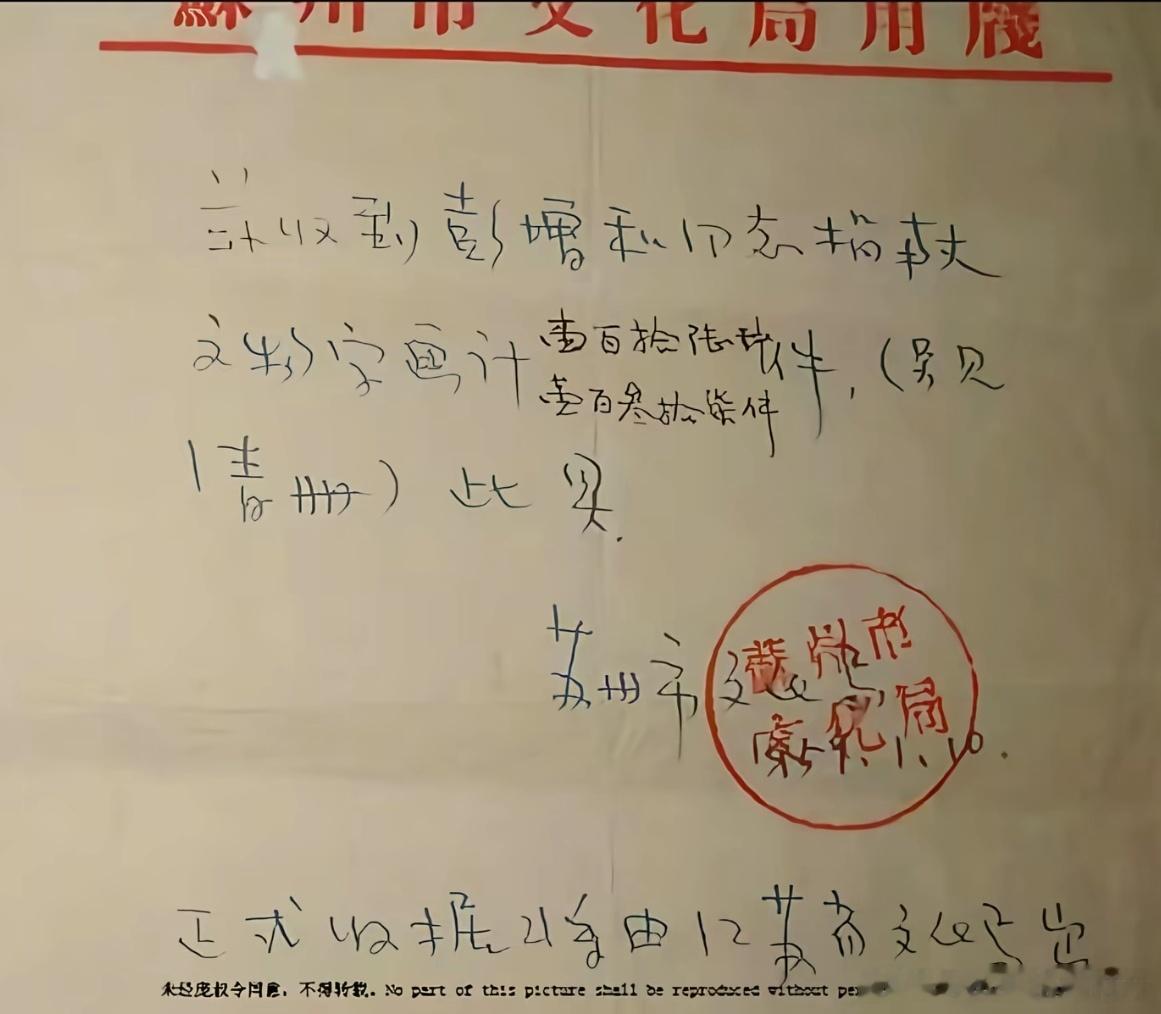 蘇州市文化局用牋
兹收到庞增和同志捐献
文物字画计
壹百拾陆号件,(另见
壹百叁拾柒件
清册)此具.
苏州市文化局
蘇州市
文化局
59.1.10.
正式收据将由江苏省文化局出
未经庞权令同意,不得转载. No part of this picture shall be reproduced without